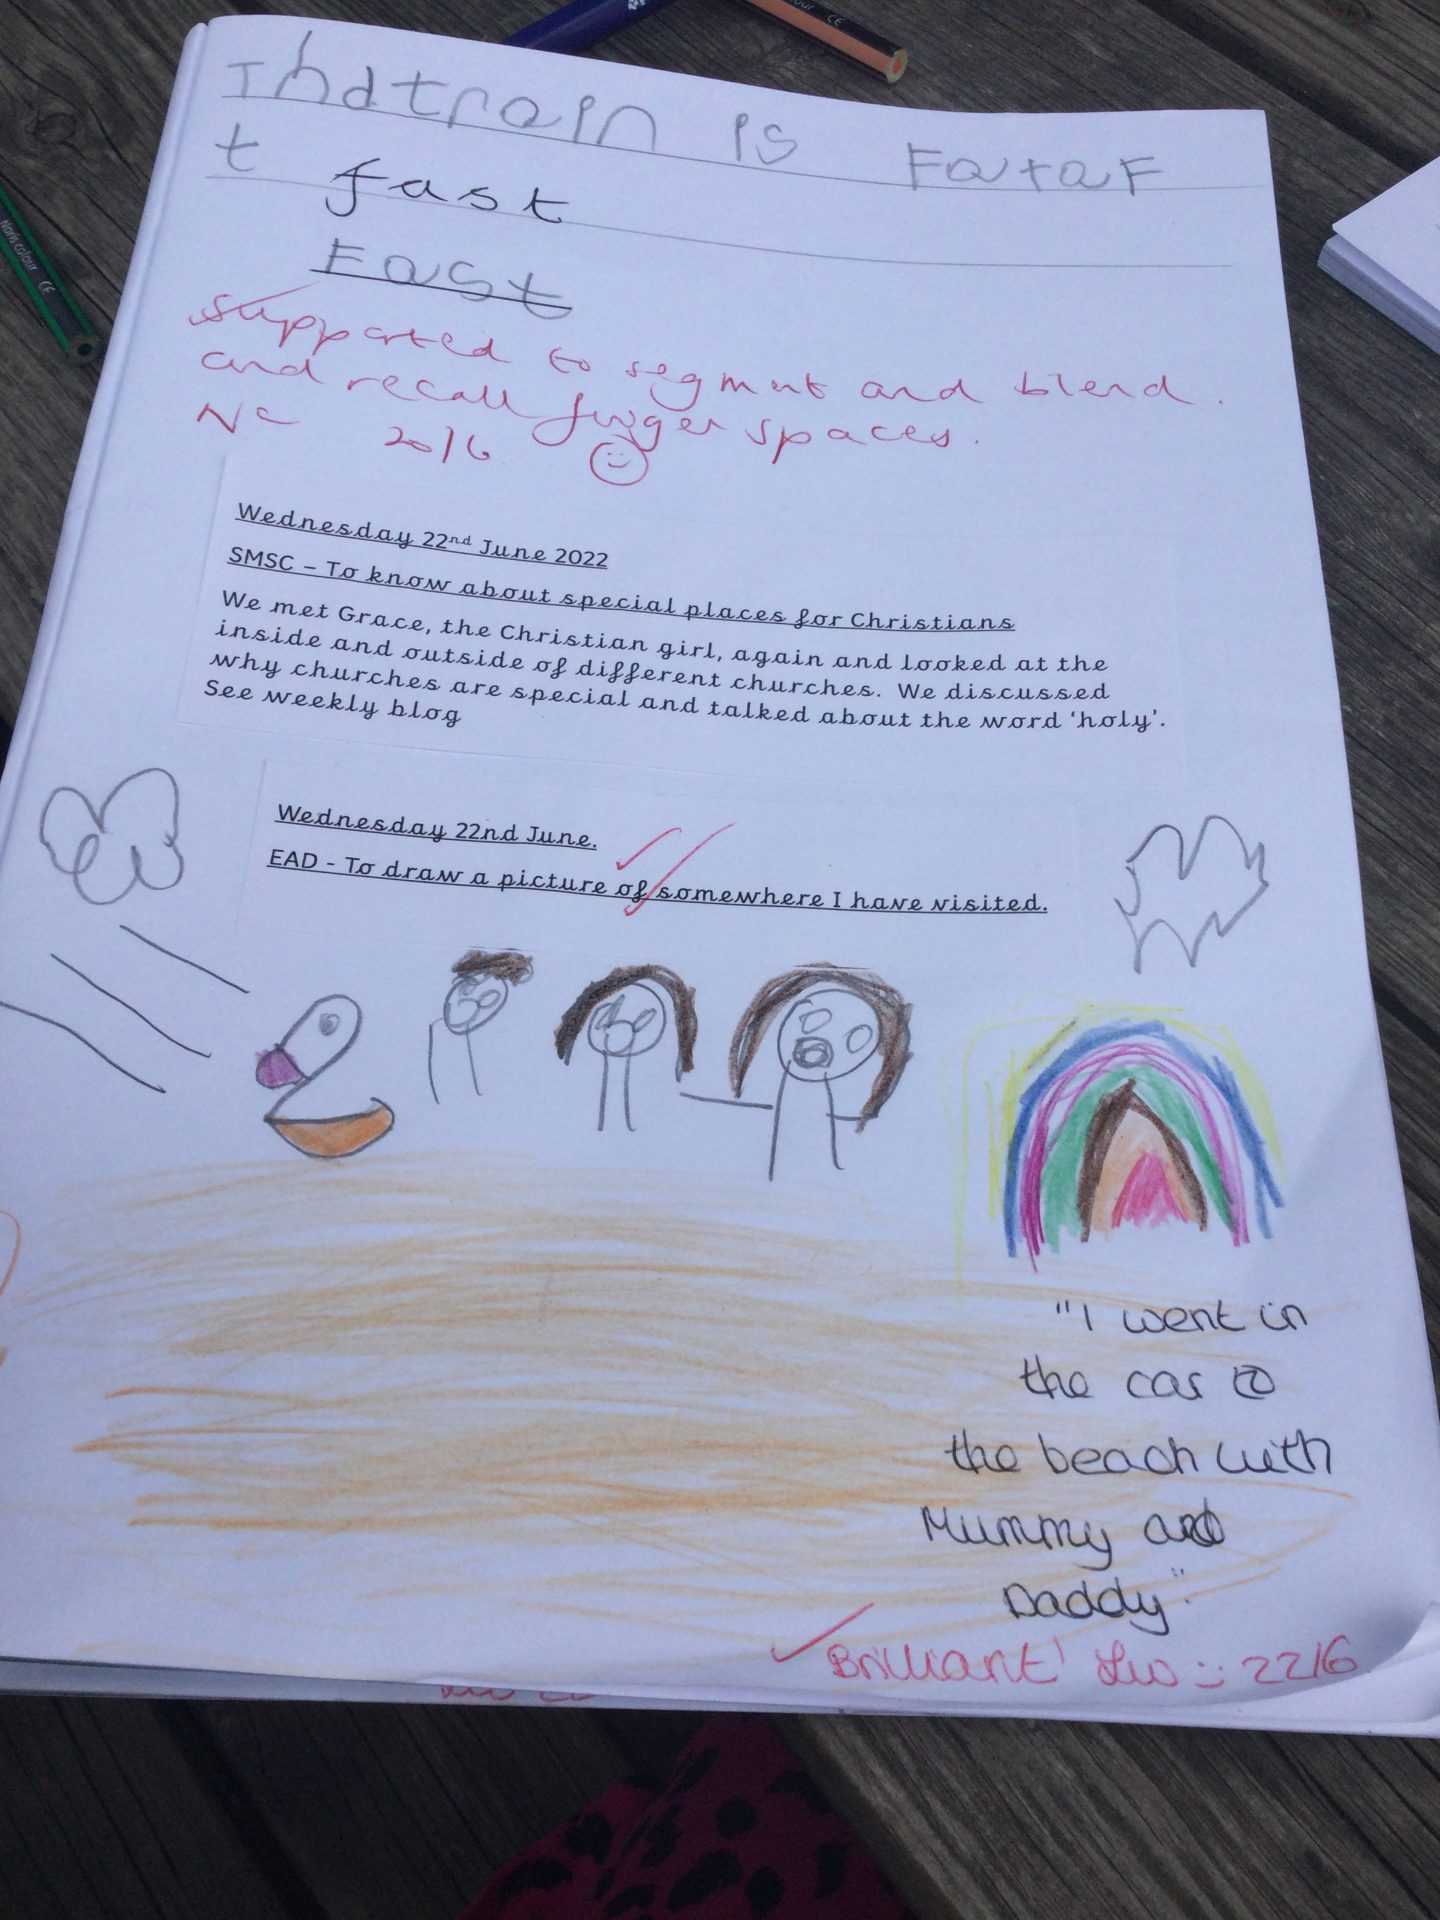 Thdtrain is Fataf
t fast
Fast
Supported to segment and blend.
and recall finger spaces.
NC 20/6
Wednesday 22nd June 2022
SMSC – To know about special places for Christians
We met Grace, the Christian girl, again and looked at the
inside and outside of different churches. We discussed
why churches are special and talked about the word ‘holy’.
See weekly blog
Wednesday 22nd June.
EAD - To draw a picture of somewhere I have visited.
"I went in
the car to
the beach with
Mummy and
Daddy".
Brilliant! 22/6
Noris colour CE
colour CE